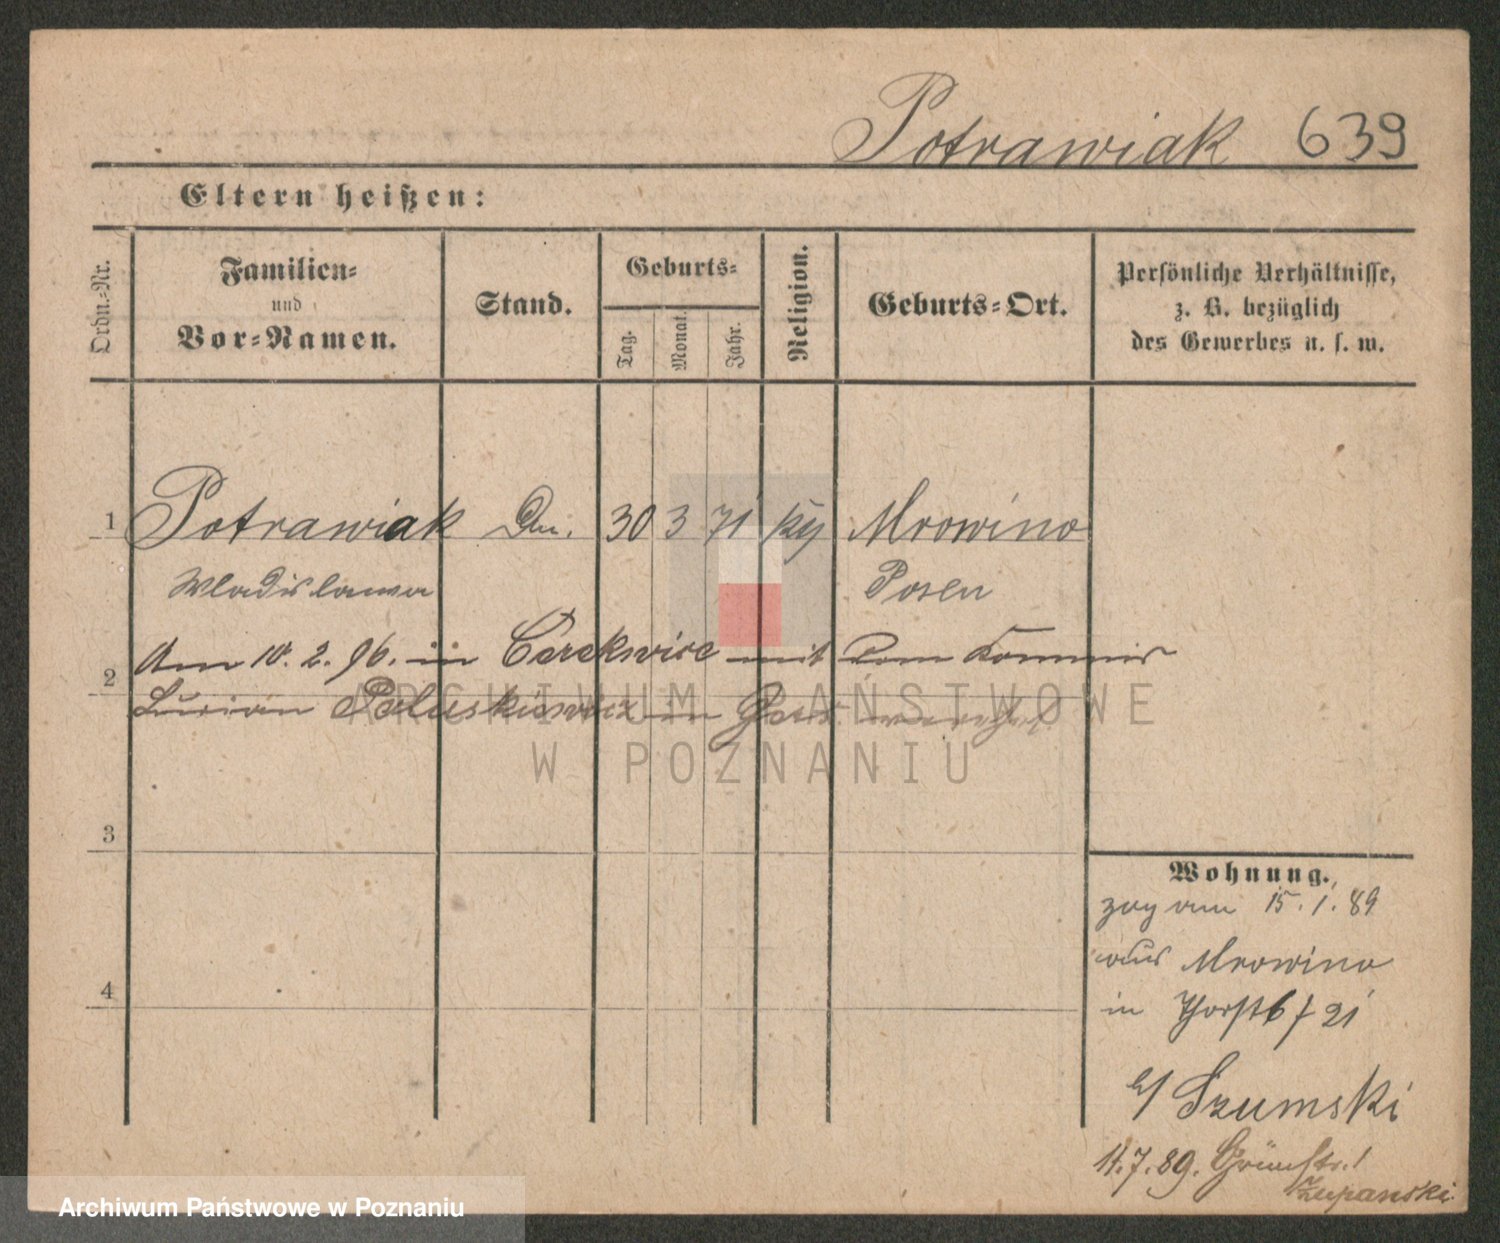 Potrawiak 639
Eltern heißen:
Ordn.-Nr.
Familien-
und
Vor-Namen.
Stand.
Geburts-
Tag.
Monat.
Jahr.
Religion.
Geburts-Ort.
Persönliche Verhältnisse,
z. B. bezüglich
des Gewerbes u. s. w.
1 Potrawiak 30 3 71 Mrowino
Wladislawa Posen
Am 10. 2. 96. in Cerekwice mit dem Kommis
2
Lucian in
ARCHIWUM PAŃSTWOWE
W POZNANIU
3
4
Wohnung.
zog am 15. 1. 89
aus Mrowino
in 21
b/ Szumski
11.7.89. Grünstr. 1
Zupanski
Archiwum Państwowe w Poznaniu